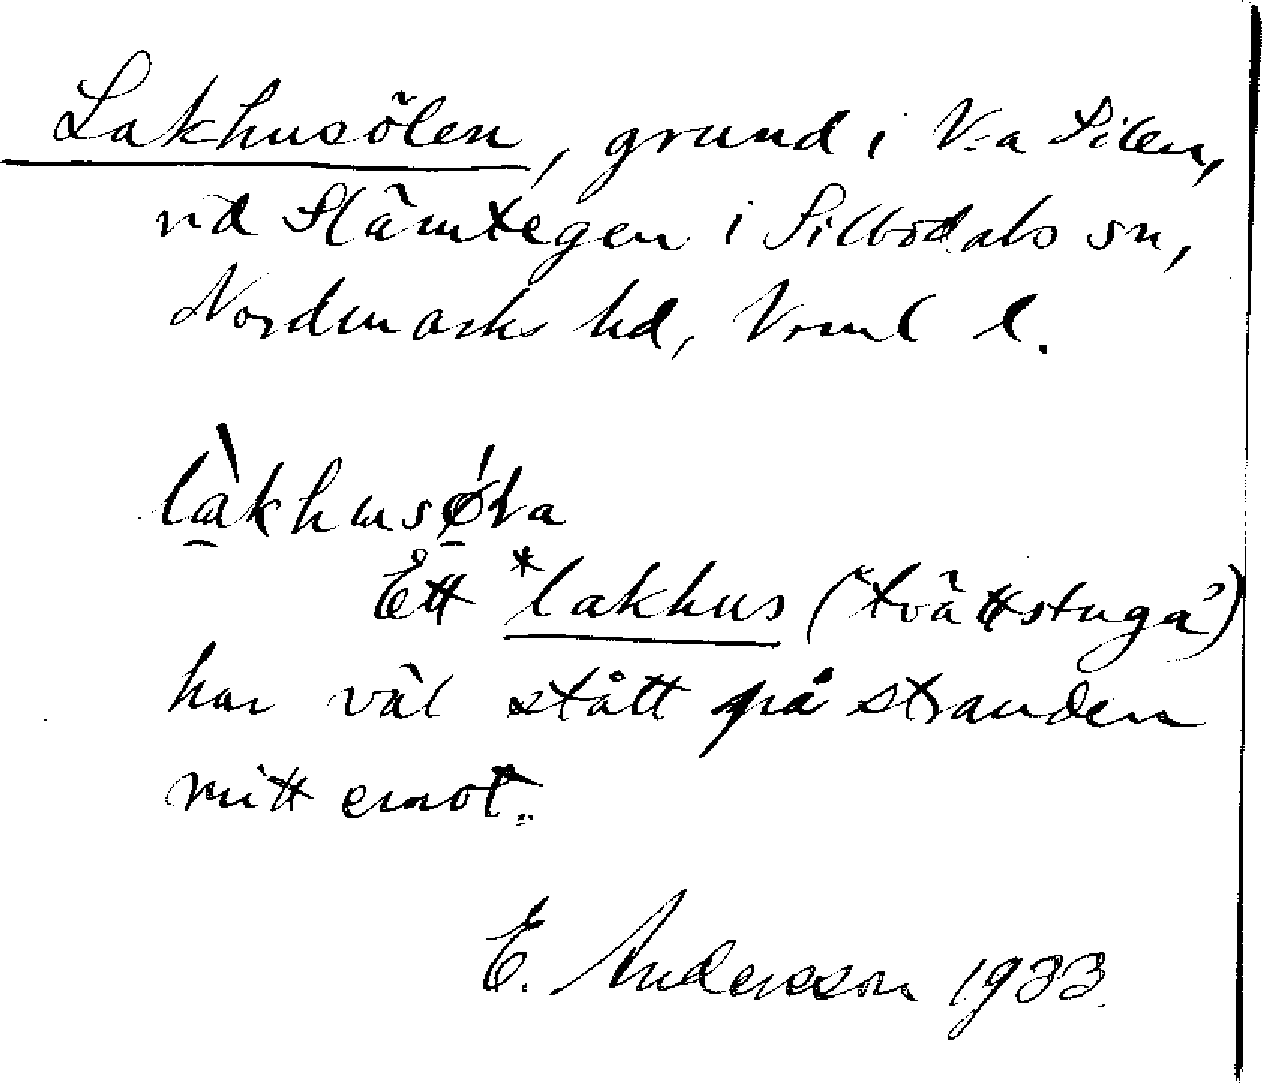 Lakhusölen, grund i V:a Silen,
vid Slämtegen i Silbodals sn,
Nordmarks hd, Vrml l.
Ett *lakhus ('tvättstuga')
har väl stått på stranden
mitt emot.
E. Andersson 1933.